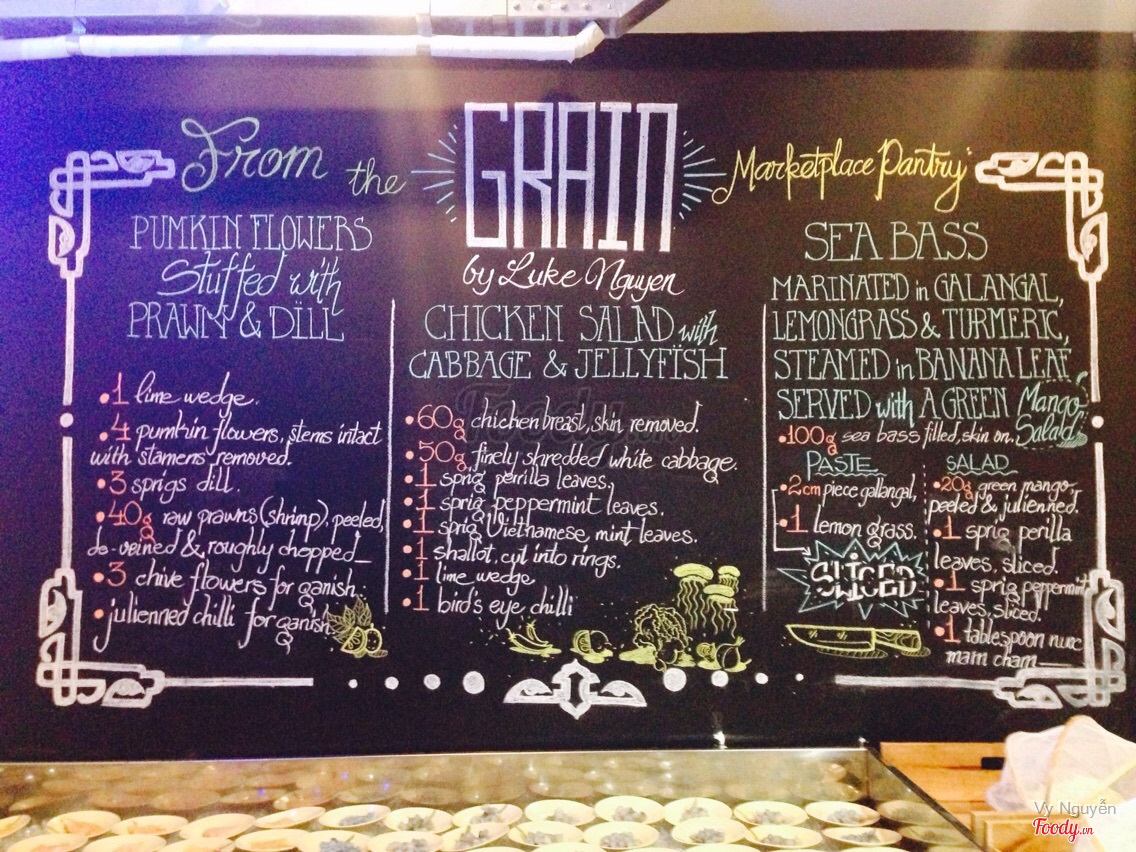 From the GRAIN Marketplace Pantry
by Luke Nguyen
PUMKIN FLOWERS
Stuffed with
PRAWN & DILL
• 1 lime wedge.
• 4 pumkin flowers, stems intact
with stamens removed.
• 3 sprigs dill.
• 40g raw prawns (shrimp), peeled,
de-veined & roughly chopped
• 3 chive flowers for ganish.
• julienned chilli for ganish.
CHICKEN SALAD with
CABBAGE & JELLYFISH
• 60g chicken breast, skin removed.
• 50g finely shredded white cabbage.
• 1 sprig perrilla leaves.
• 1 sprig peppermint leaves.
• 1 sprig Vietnamese mint leaves.
• 1 shallot, cut into rings.
• 1 lime wedge
• 1 bird's eye chilli
SEA BASS
MARINATED in GALANGAL,
LEMONGRASS & TURMERIC,
STEAMED in BANANA LEAF
SERVED with A GREEN Mango
Salad
• 100g sea bass filled, skin on.
PASTE
• 2cm piece gallangal,
• 1 lemon grass.
SLICED
SALAD
• 20g green mango,
peeled & julienned.
• 1 sprig perilla
leaves, sliced.
• 1 sprig peppermint
leaves, sliced.
• 1 tablespoon nuc
mam cham
Foody.vn
Vy Nguyễn
Foody.vn